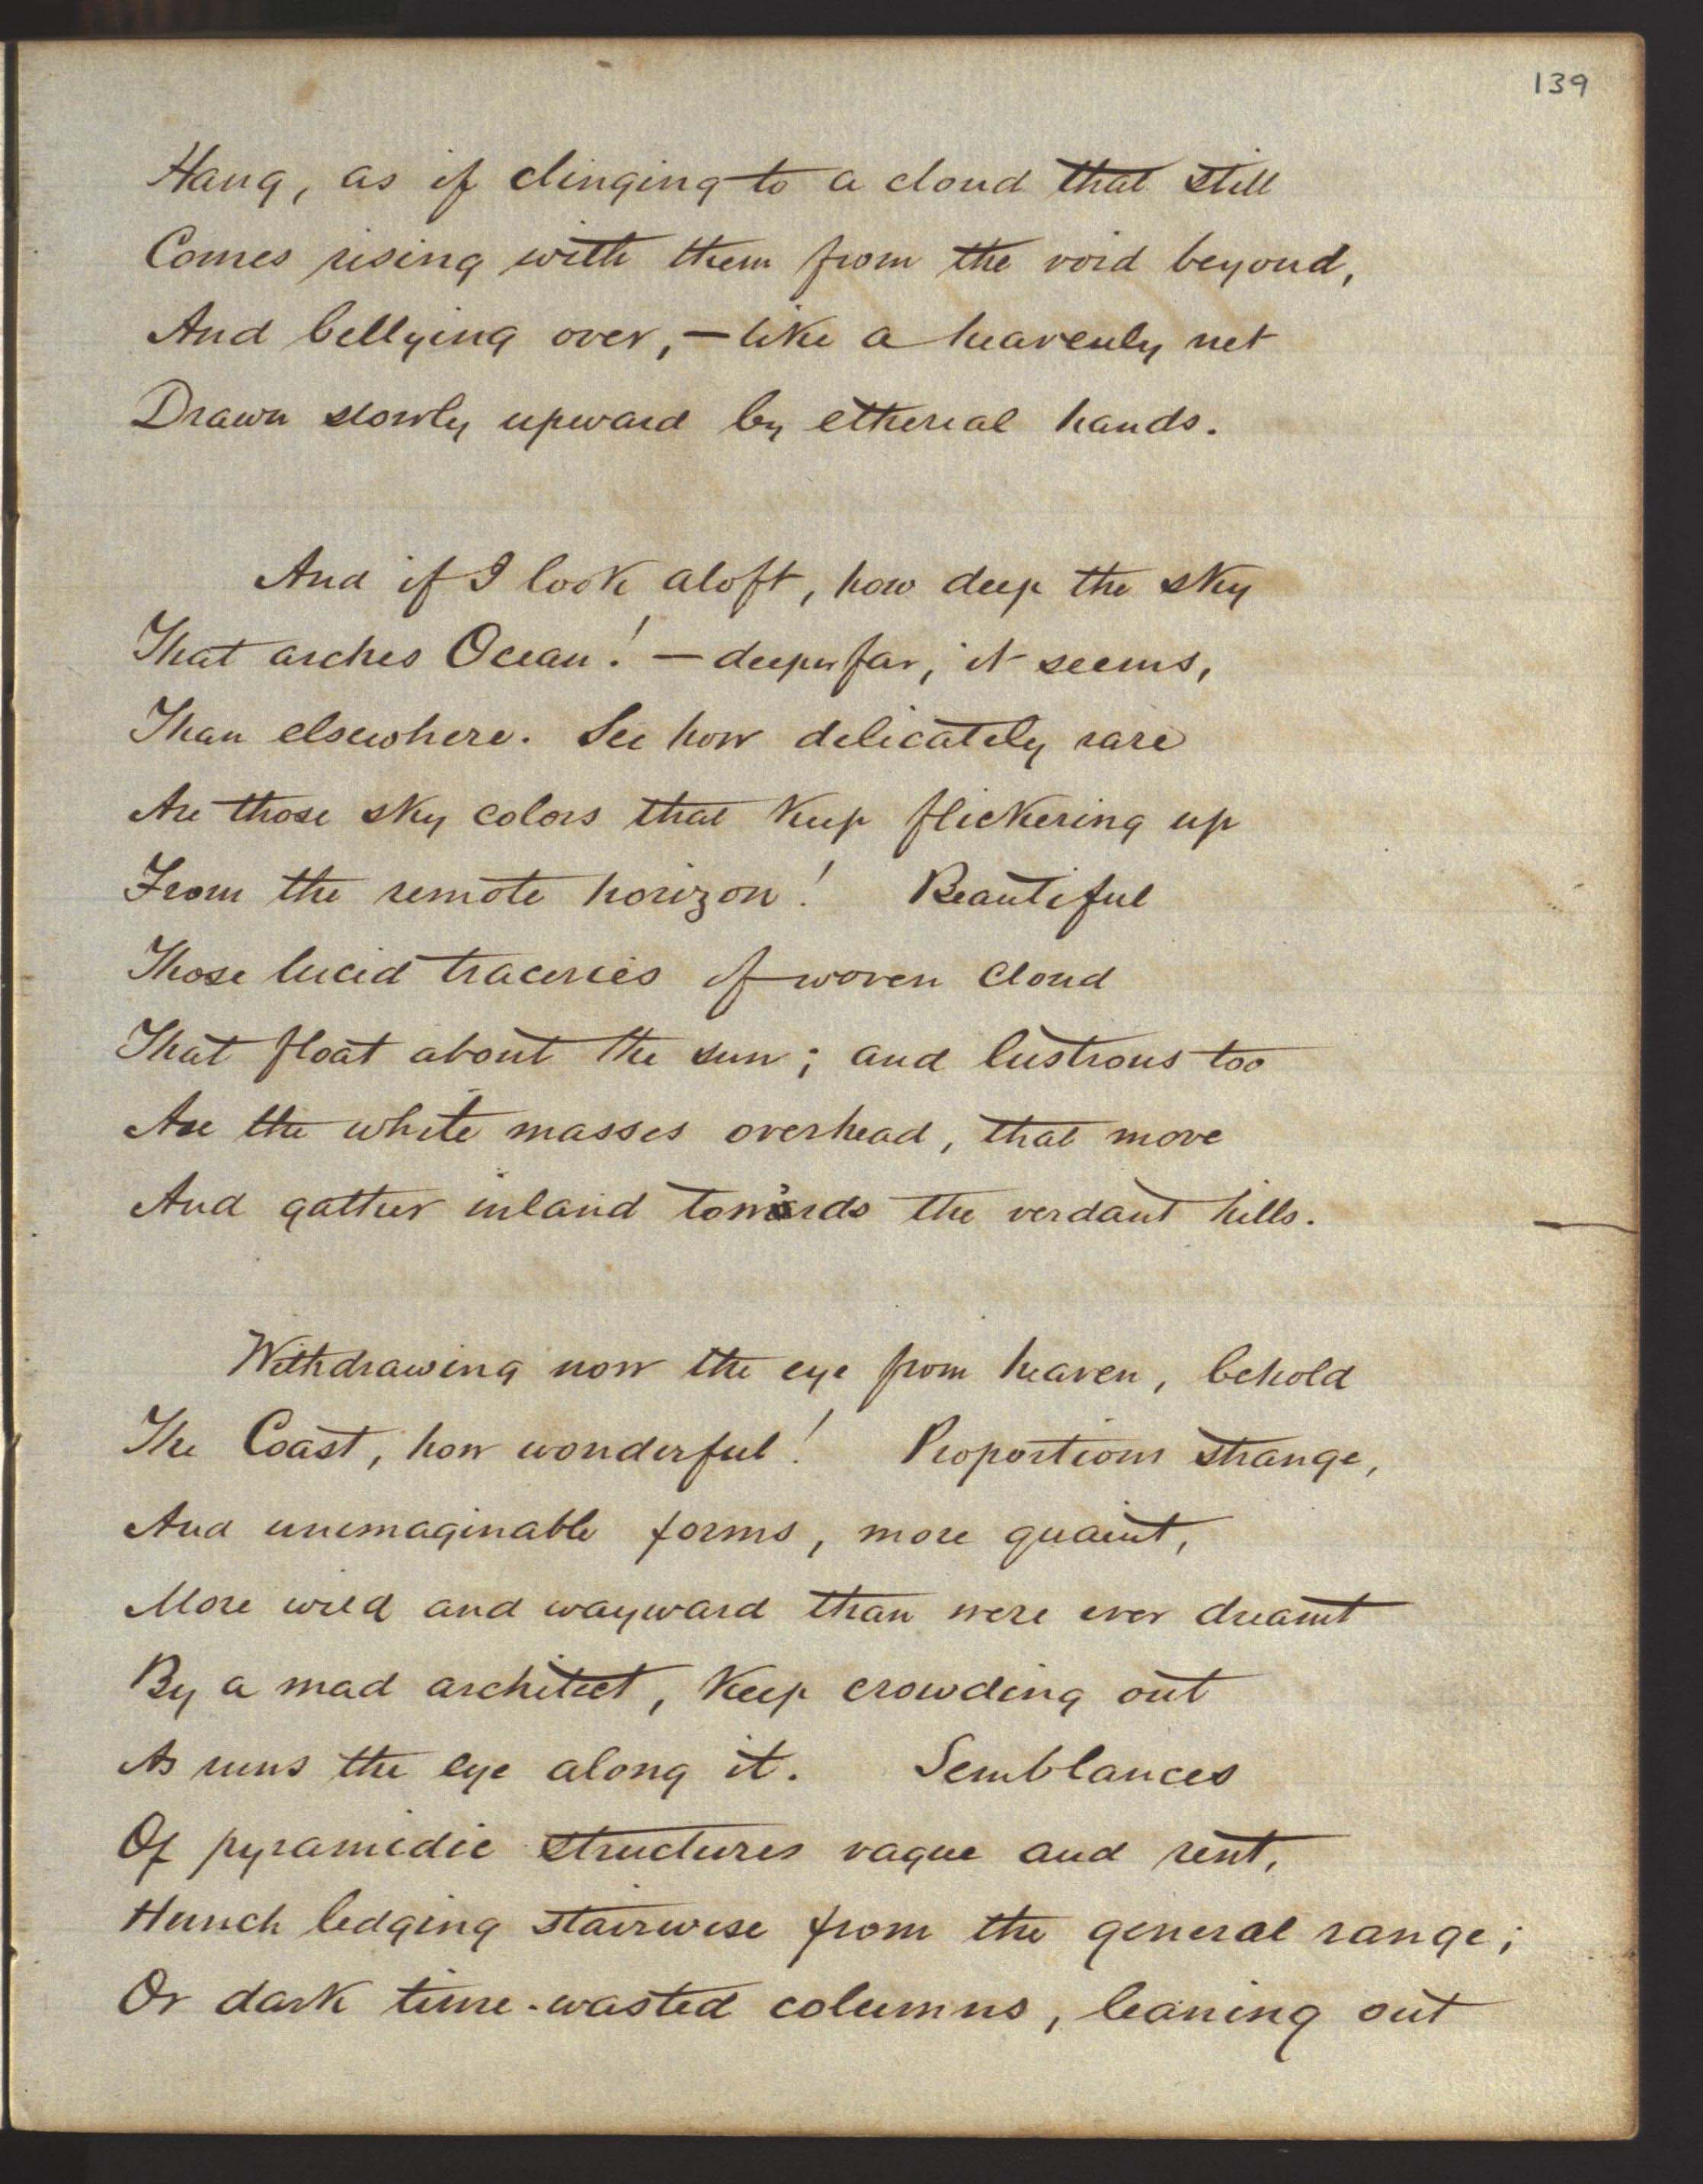 139
Hang, as if clinging to a cloud that still
Comes rising with them from the void beyond,
And bellying over, – like a heavenly net
Drawn slowly upward by ethereal hands.
And if I look aloft, how deep the sky
That arches Ocean! – deeper far, it seems,
Than elsewhere. See how delicately rare
Are those sky colors that keep flickering up
From the remote horizon! Beautiful
Those lucid traceries of woven cloud
That float about the sun; and lustrous too
Are the white masses overhead, that move
And gather inland tow'rds the verdant hills.
Withdrawing now the eye from heaven, behold
The Coast, how wonderful! Proportions strange,
And unimaginable forms, more quaint,
More wild and wayward than were ever dreamt
By a mad architect, keep crowding out
As runs the eye along it. Semblances
Of pyramidic structures vague and rent,
Hunch ledging stairwise from the general range;
Or dark time-wasted columns, leaning out